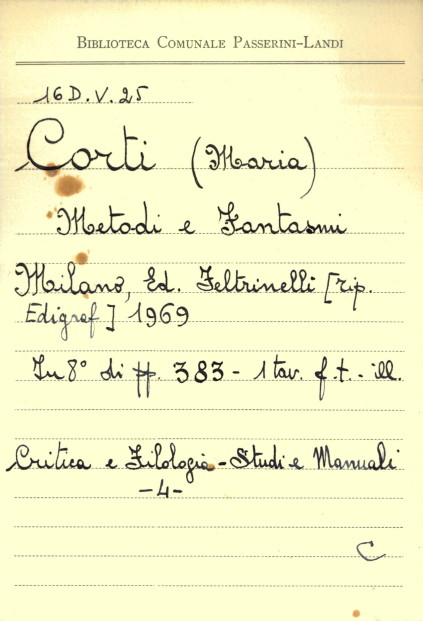 BIBLIOTECA COMUNALE PASSERINI-LANDI
16 D. V. 25
Corti (Maria)
Metodi e Fantasmi
Milano, Ed. Feltrinelli [rip.
Edigraf] 1969
In 8° di pp. 383 - 1 tav. f. t. - ill.
Critica e Filologia - Studi e Manuali
-4-
C